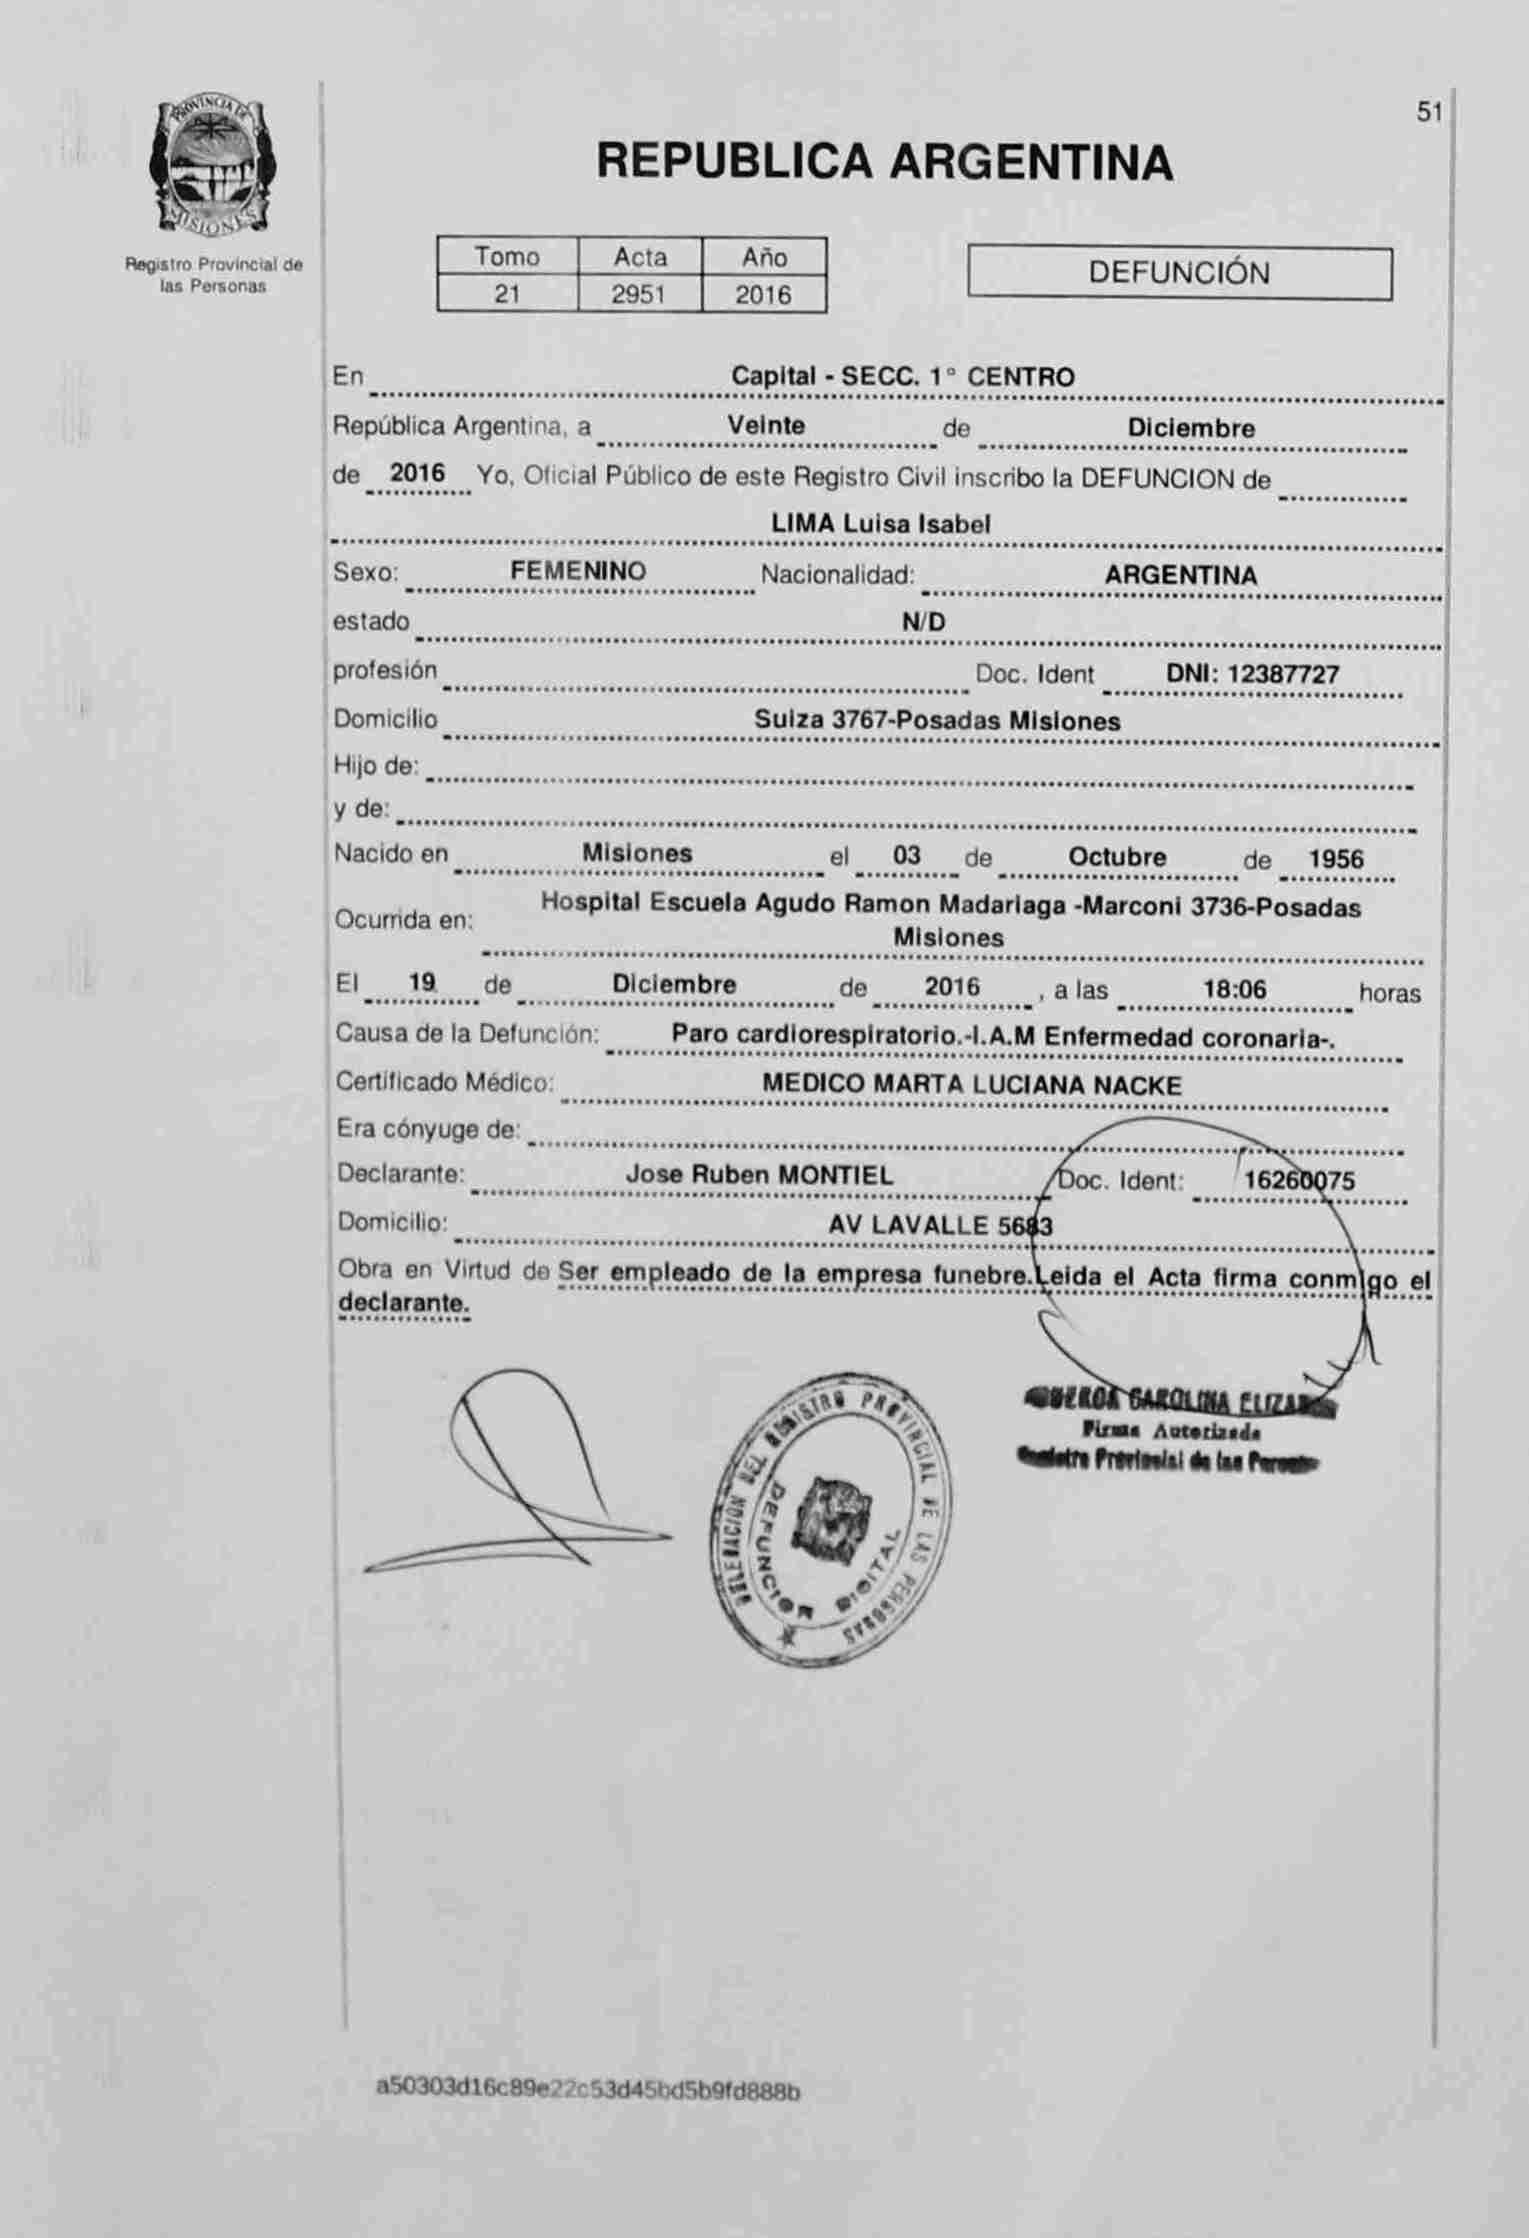 51
PROVINCIA DE
MISIONES
Registro Provincial de
las Personas
REPUBLICA ARGENTINA
Tomo Acta Año
21 2951 2016
DEFUNCIÓN
En Capital - SECC. 1° CENTRO
República Argentina, a Veinte de Diciembre
de 2016 Yo, Oficial Público de este Registro Civil inscribo la DEFUNCION de
LIMA Luisa Isabel
Sexo: FEMENINO Nacionalidad: ARGENTINA
estado N/D
profesión Doc. Ident DNI: 12387727
Domicilio Suiza 3767-Posadas Misiones
Hijo de:
y de:
Nacido en Misiones el 03 de Octubre de 1956
Ocurrida en: Hospital Escuela Agudo Ramon Madariaga -Marconi 3736-Posadas
Misiones
El 19 de Diciembre de 2016 , a las 18:06 horas
Causa de la Defunción: Paro cardiorespiratorio.-I.A.M Enfermedad coronaria-.
Certificado Médico: MEDICO MARTA LUCIANA NACKE
Era cónyuge de:
Declarante: Jose Ruben MONTIEL Doc. Ident: 16260075
Domicilio: AV LAVALLE 5683
Obra en Virtud de Ser empleado de la empresa funebre.Leida el Acta firma conmigo el
declarante.
DELEGACION DEL REGISTRO PROVINCIAL DE LAS PERSONAS
DEFUNCION DIGITAL
CAROLINA
Firma Autorizada
Registro Provincial de las Personas
a50303d16c89e22c53d45bd5b9fd888b